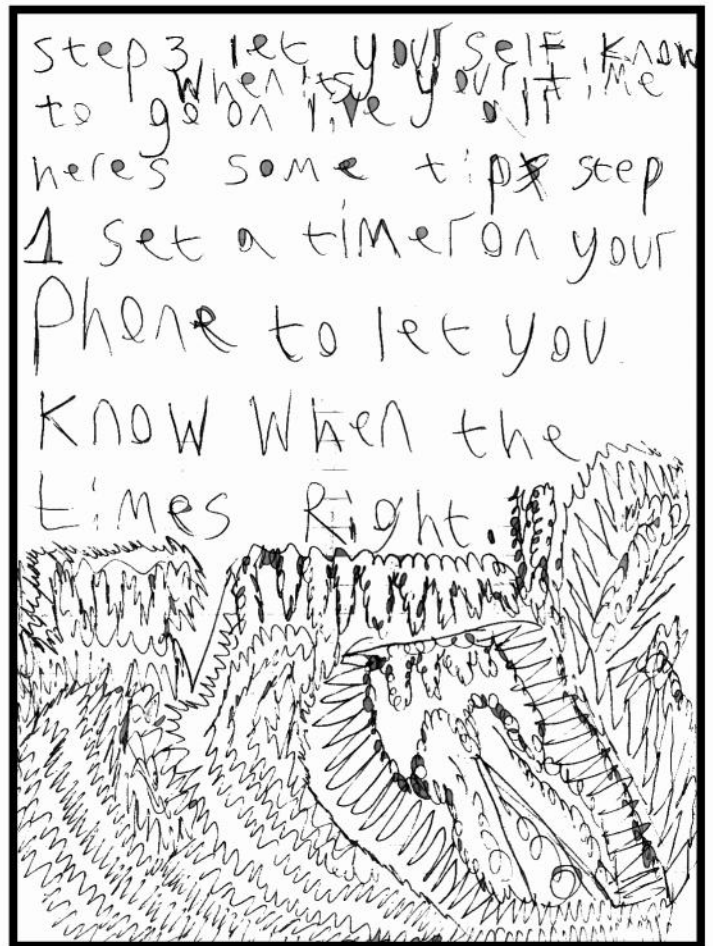 step 3 let your self know
when its your time
to go on live
heres some tips step
1 set a timer on your
Phone to let you
know when the
times Right.